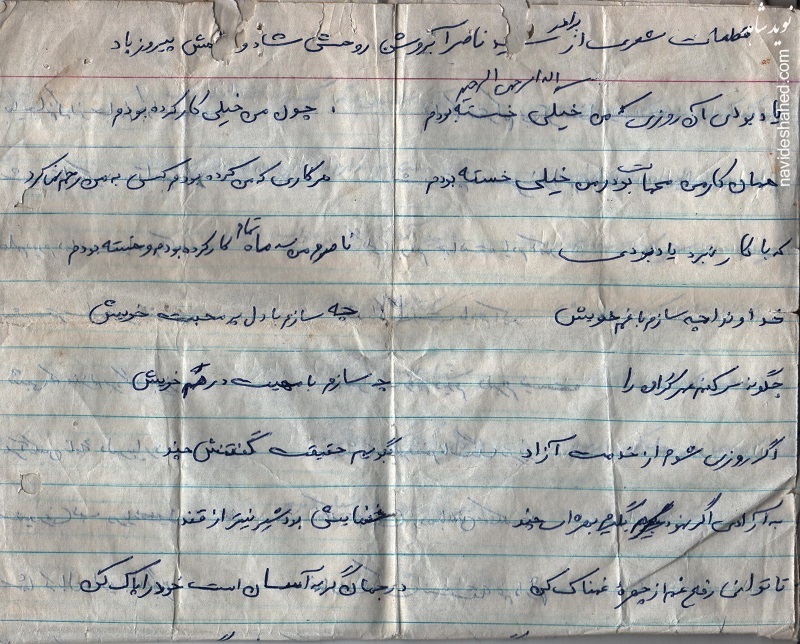 کلمات شعری از برادر شهید ناصر آبروشن روحش شاد و راهش پیروز باد
بسم الله الرحمن الرحیم
یاد بودی آن روزی که من خیلی خسته بودم چون من خیلی کار کرده بودم
همان کار من مهمات بود و من خیلی خسته بودم هر کاری که من کرده بودم کسی به من رحم نکرد
که با کار نبرد یاد بودی ناصرم من سه ماه تمام کار کرده بودم و خسته بودم
خداوندا چه سازم با غم خویش چه سازم با دل پر محبت خویش
چگونه سر کنم عمر گران را چه سازم با درهم خویش
اگر روزی شوم از خدمت آزاد بگویم حقیقت گفتنش چند
به آزادی اگر بگیرم بهره‌ای چند بود شیرینتر از قند
تا توانی رفع غم از چهره غمناک کن در جهان گریه آسان است خود را پاک کن
نوید شاهد
navideshahed.com